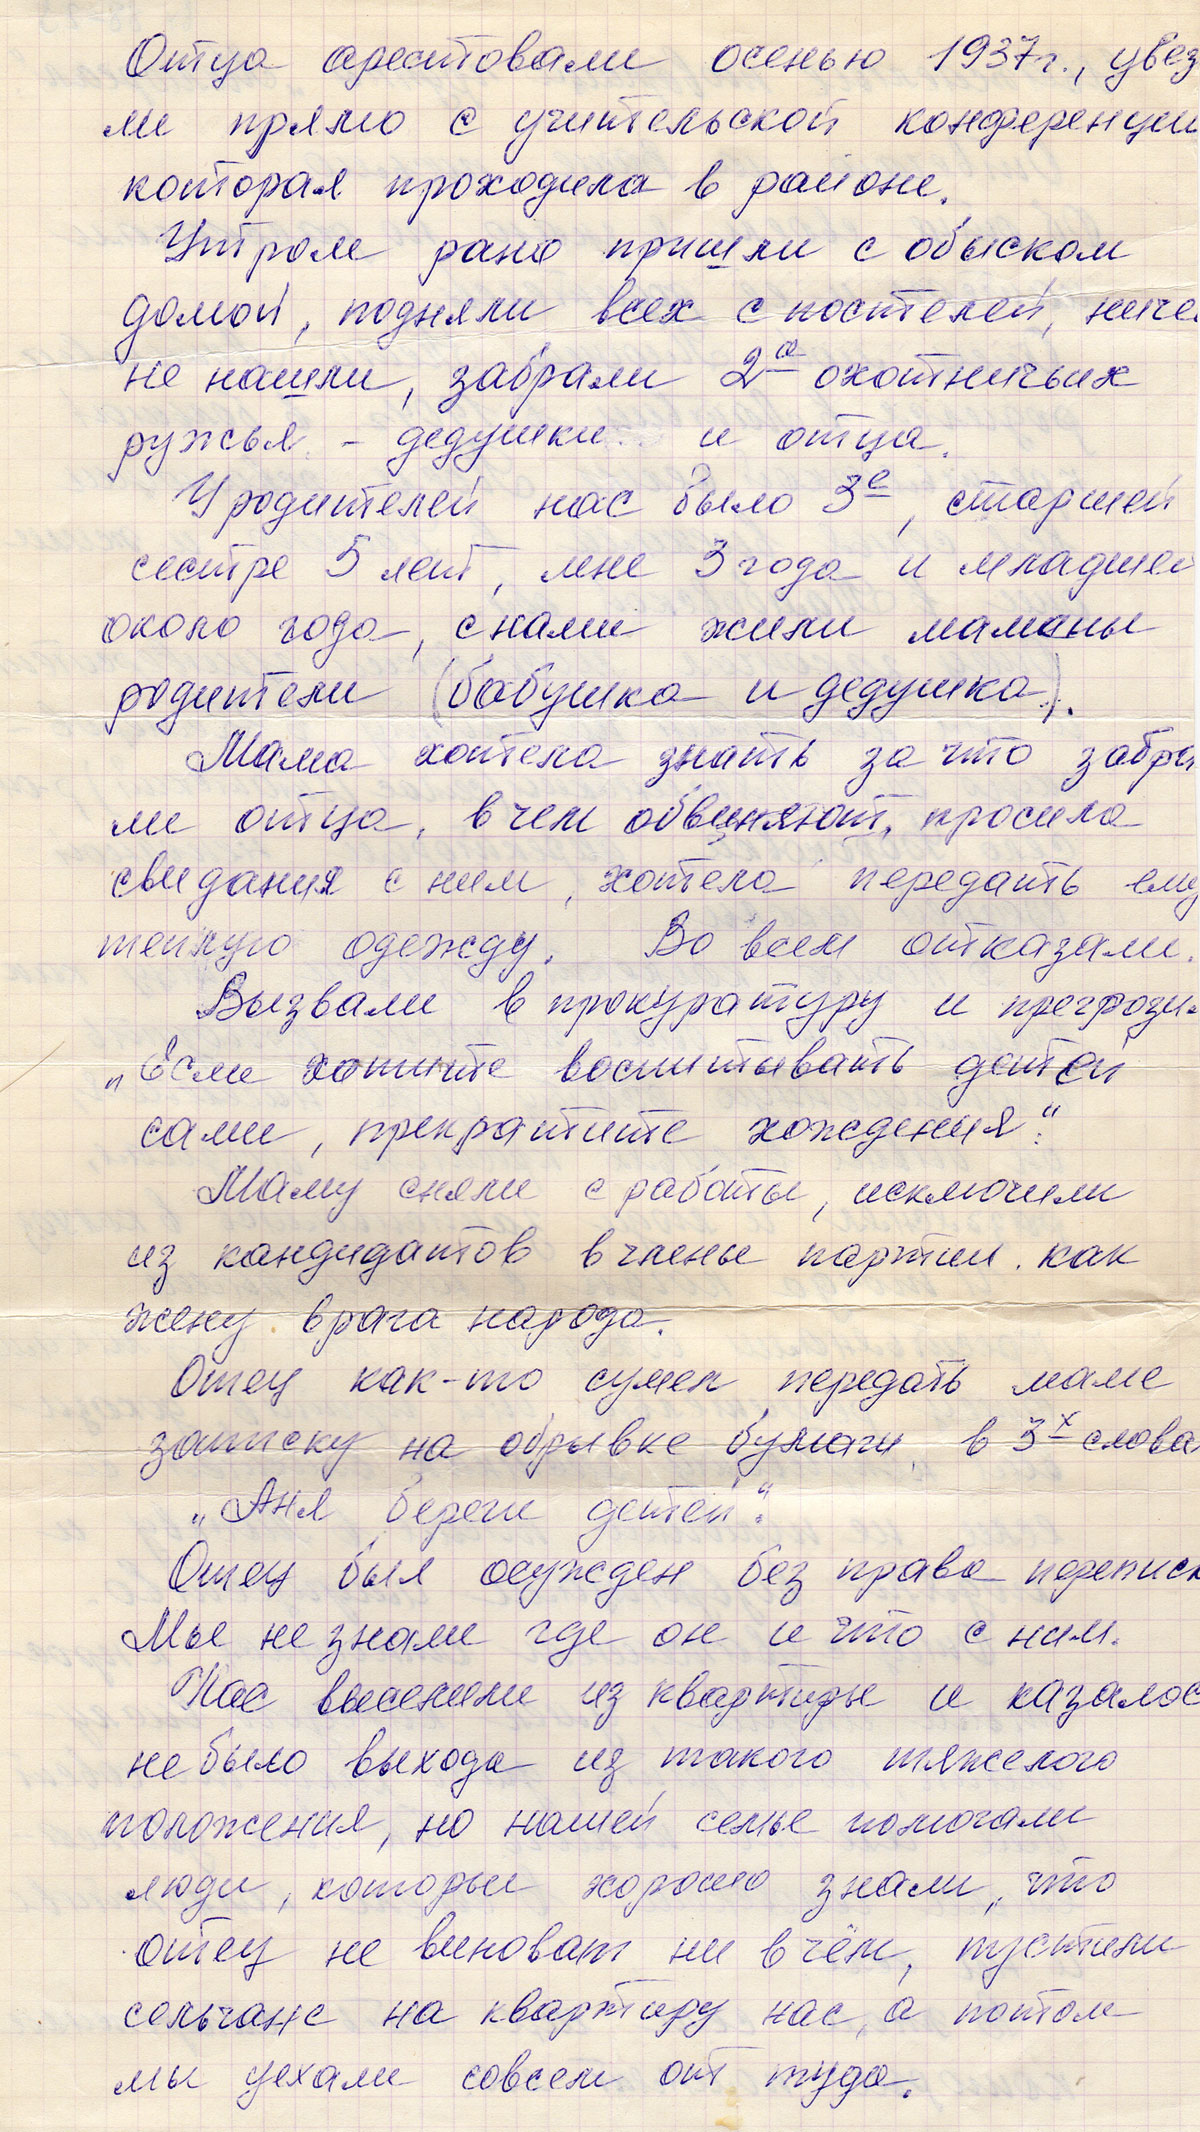 Отца арестовали осенью 1937г., увез
ли прямо с учительской конференции
которая проходила в районе.
Утром рано пришли с обыском
домой, подняли всех с постелей, ниче
не нашли, забрали 2а охотничьих
ружья - дедушки и отца.
У родителей нас было 3е, старшей
сестре 5 лет, мне 3 года и младшей
около года, с нами жили мамины
родители (бабушка и дедушка).
Мама хотела знать за что забра
ли отца, в чем обвиняют, просила
свидания с ним, хотела передать ему
теплую одежду. Во всем отказали.
Вызвали в прокуратуру и прегрози-
„Если хотите воспитывать детей
сами, прекратите хождения".
Маму сняли с работы, исключили
из кандидатов в члены партии. как
жену врага народа.
Отец как-то сумел передать маме
записку на обрывке бумаги, в 3х слова
„Аня береги детей".
Отец был осужден без права переписк
Мы не знали где он и что с ним.
Нас выселили из квартиры и казалос
не было выхода из такого тяжелого
положения, но нашей семье помогали
люди, которые хорошо знали, что
отец не виноват ни в чём, пустили
сельчане на квартиру нас, а потом
мы уехали совсем от туда.